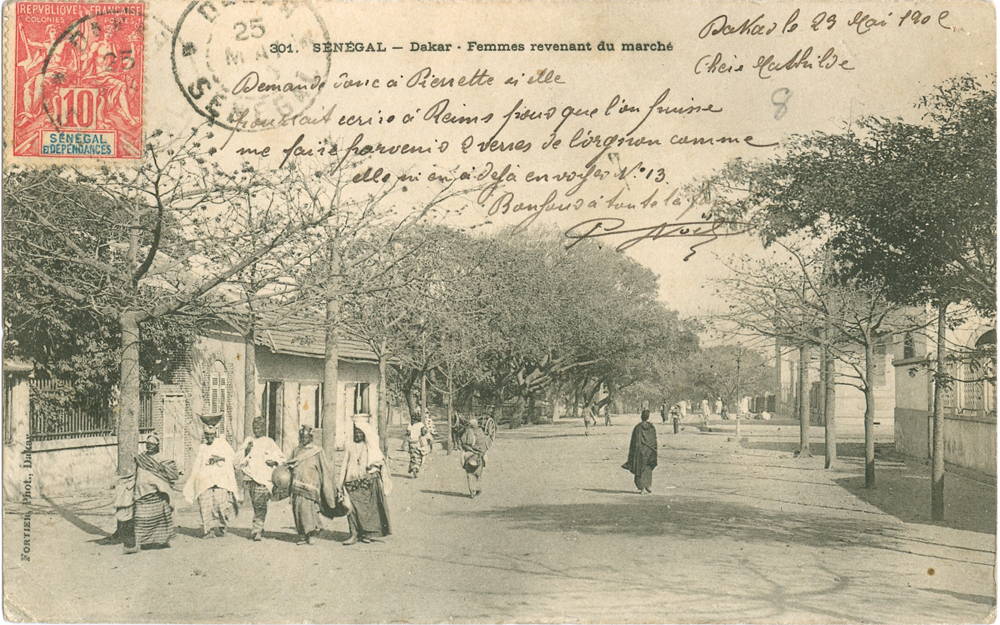 RÉPVBLIQVE FRANÇAISE
COLONIES POSTES
10
SÉNÉGAL
ET DÉPENDANCES
DAKAR
25
MAI
SÉNÉGAL
301. SÉNÉGAL — Dakar - Femmes revenant du marché
Dakar le 23 Mai 190
Chère Mathilde
8
Demande donc à Pierrette si elle
pourrait ecrire à Reims pour que l'on puisse
me faire parvenir 2 verres de lorgnon comme
elle m'en a déja envoyés N° 13
Bonjour à toute la
FORTIER, Phot., Dakar